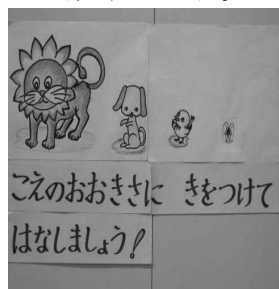 こえのおおきさに きをつけて
はなしましょう!